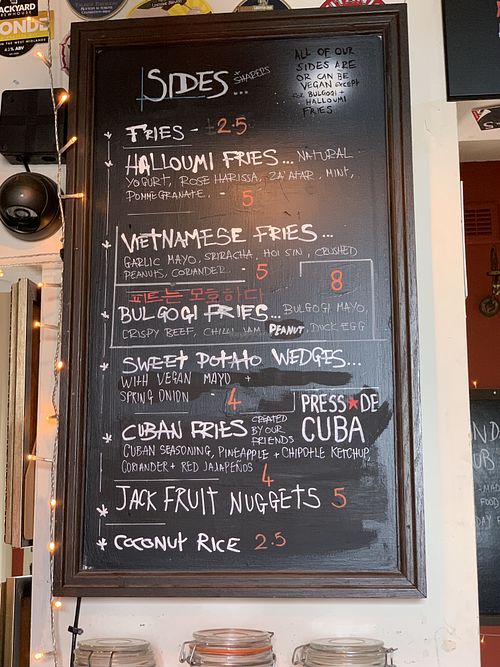 BACKYARD
BREWHOUSE
BLONDE
IN THE WEST MIDLANDS
4.1% ABV
SIDES + SHARERS
...
ALL OF OUR
SIDES ARE
OR CAN BE
VEGAN EXCEPT
BULGOGI +
HALLOUMI
FRIES
FRIES - 2.5
HALLOUMI FRIES... NATURAL
YOGURT, ROSE HARISSA, ZA'ATAR, MINT,
POMMEGRANATE. - 5
VIETNAMESE FRIES...
GARLIC MAYO, SRIRACHA, HOI SIN, CRUSHED
PEANUTS, CORIANDER - 5
8
피트는 모호하다
BULGOGI FRIES... BULGOGI MAYO,
CRISPY BEEF, CHILLI JAM, PEANUT, DUCK EGG
SWEET POTATO WEDGES...
WITH VEGAN MAYO +
SPRING ONION - 4
PRESS★DE
CUBA
CUBAN FRIES CREATED
BY OUR
FRIENDS
CUBAN SEASONING, PINEAPPLE + CHIPOTLE KETCHUP,
CORIANDER + RED JALAPEÑOS 4
JACK FRUIT NUGGETS 5
COCONUT RICE 2.5